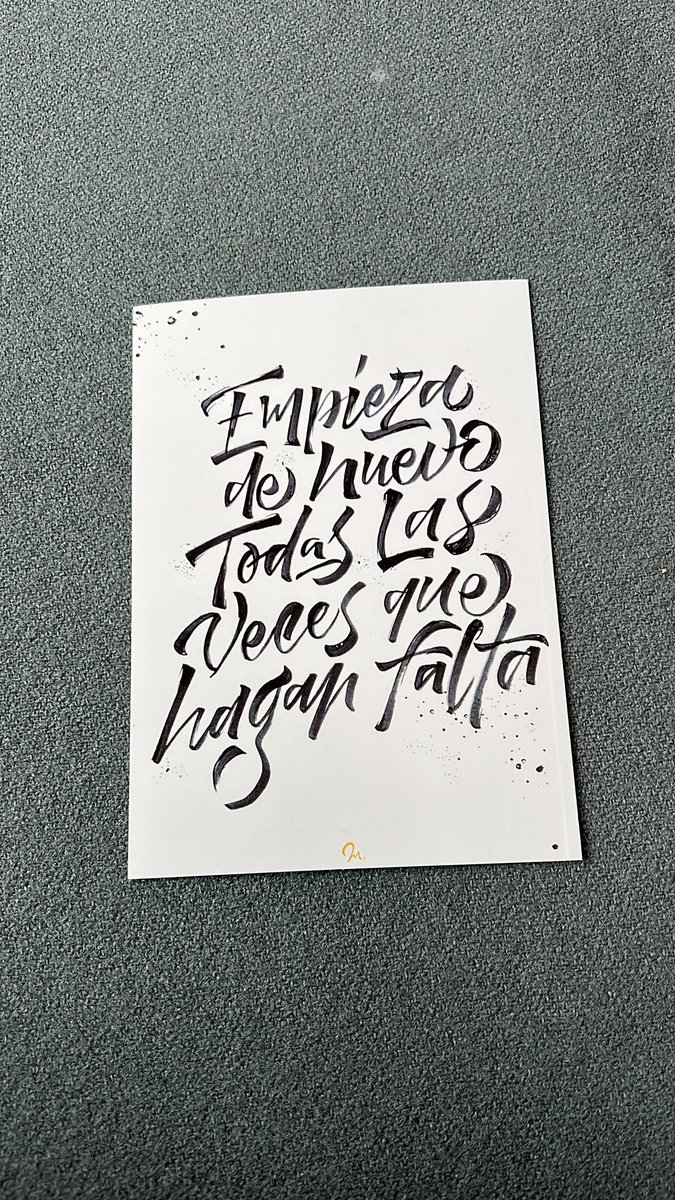 Empieza
de nuevo
Todas Las
veces que
hagan falta